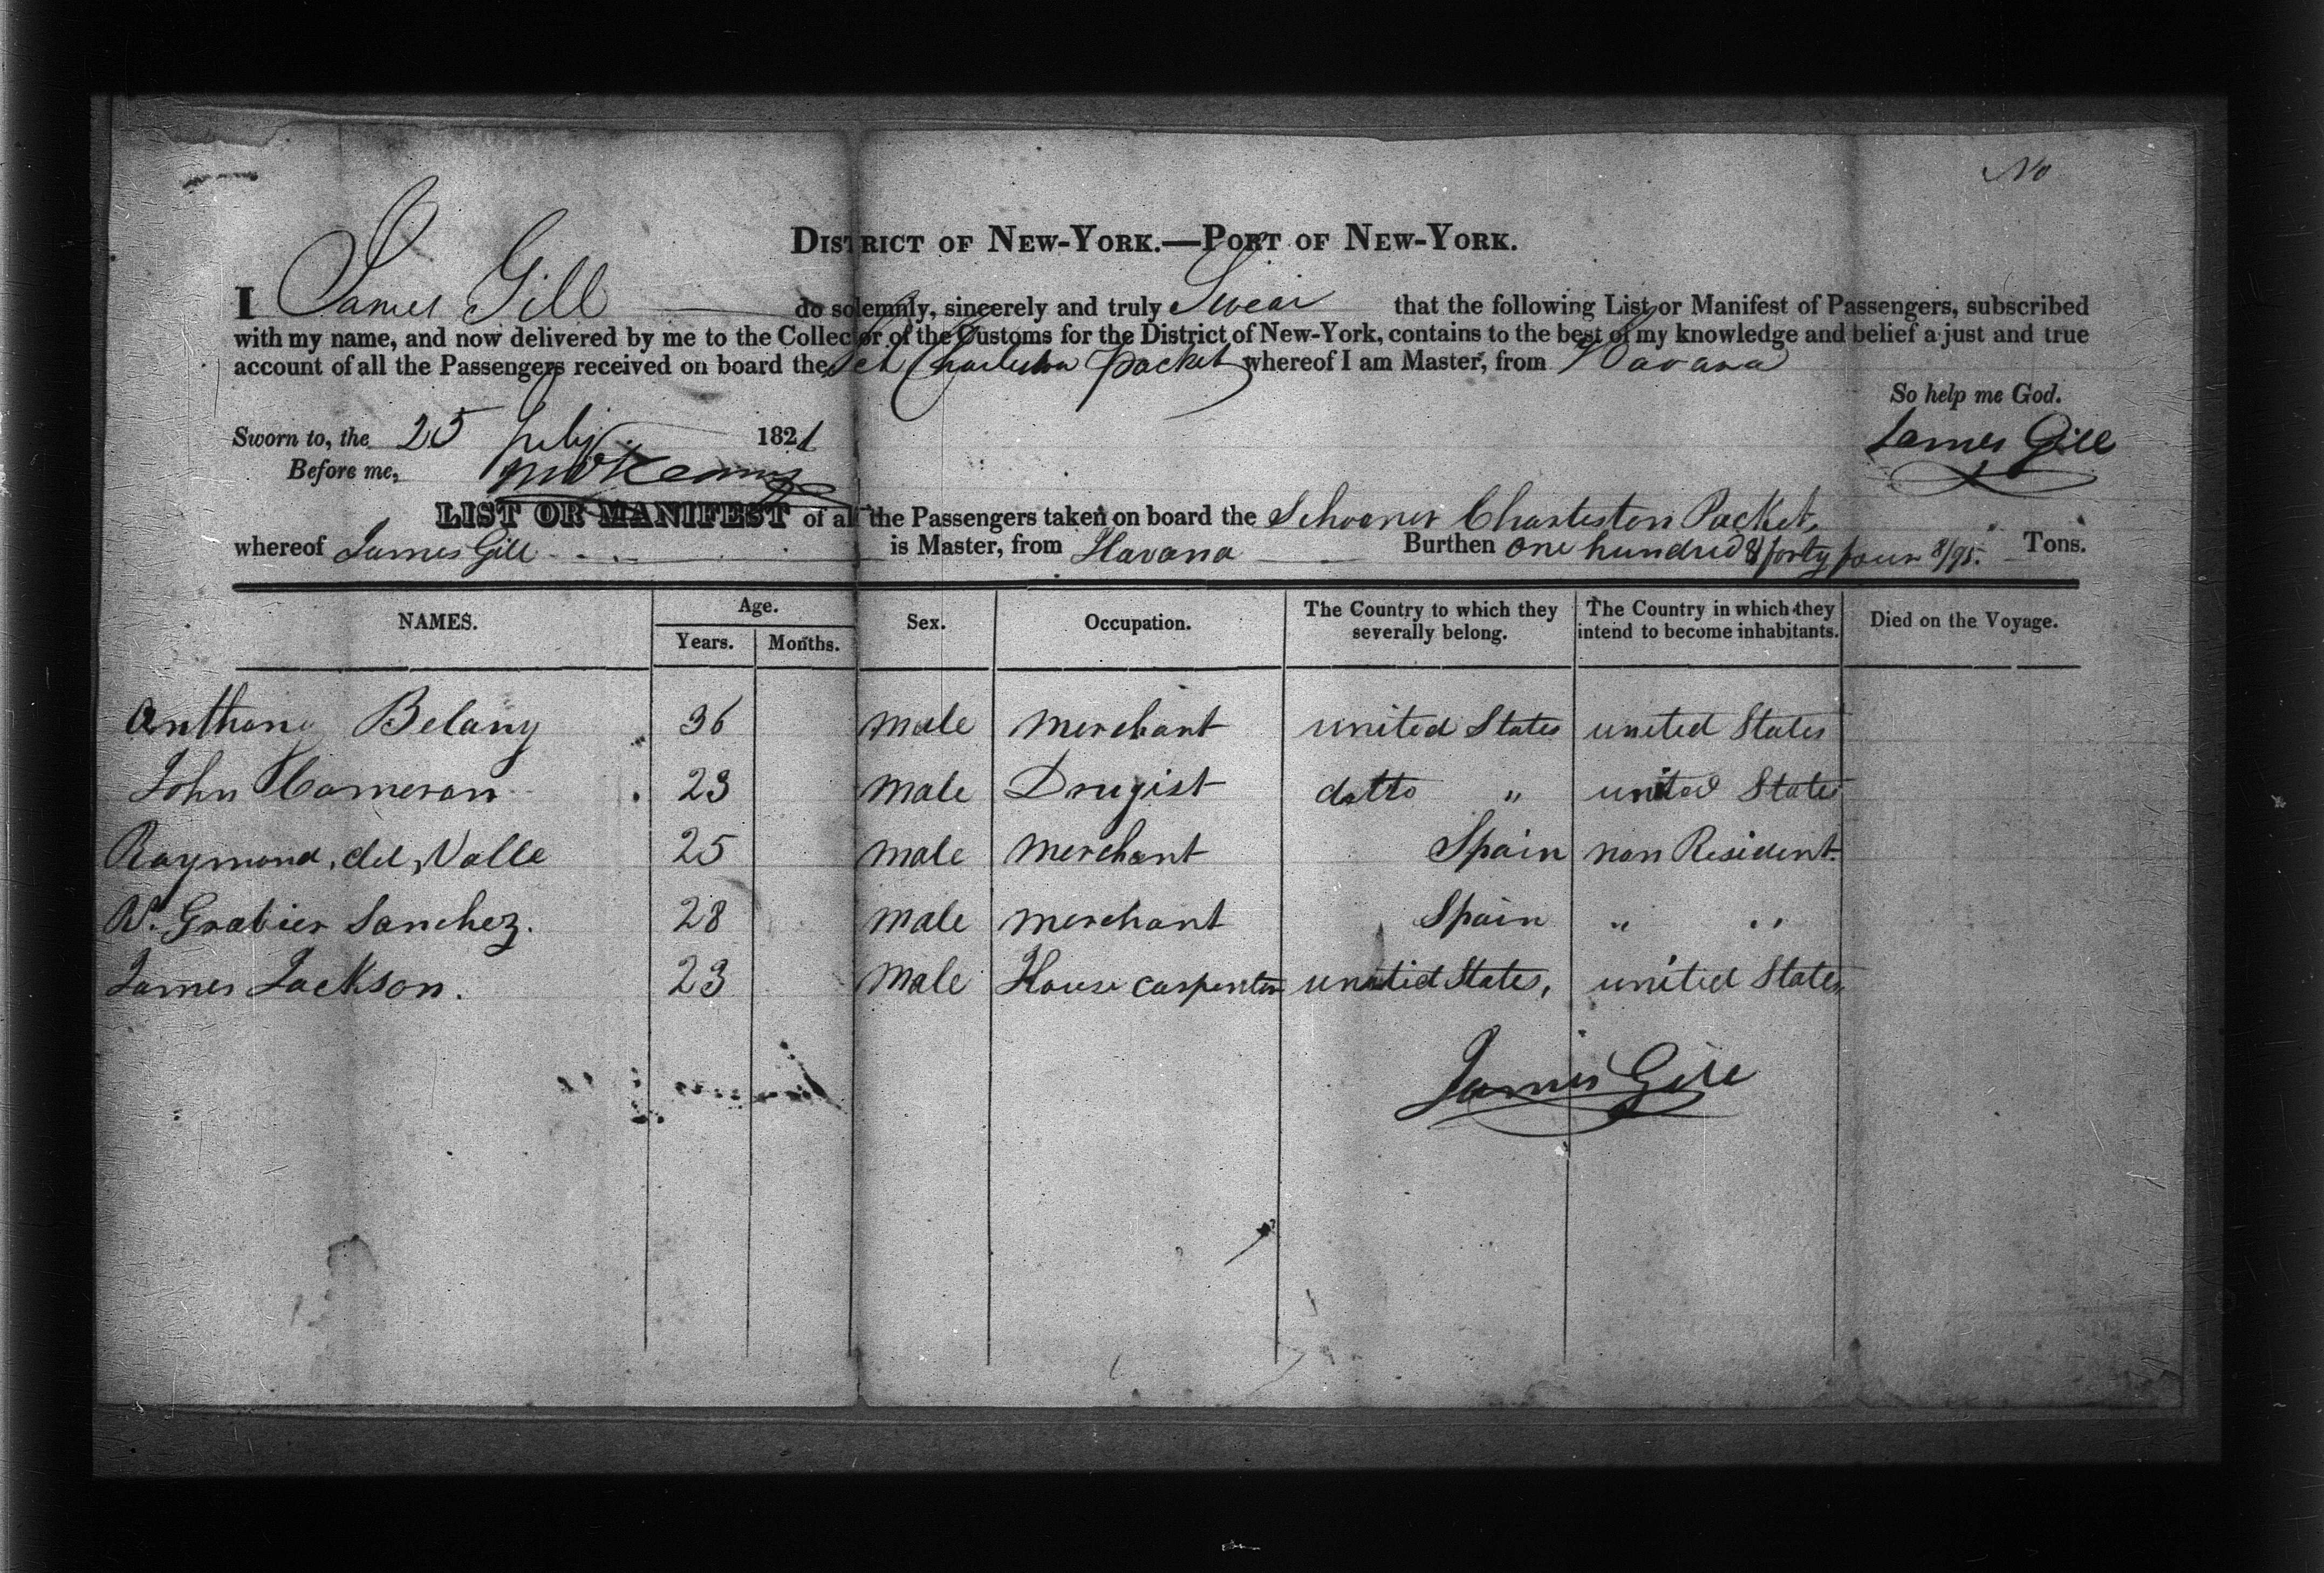 No
DISTRICT OF NEW-YORK.—PORT OF NEW-YORK.
I James Gill do solemnly, sincerely and truly Swear that the following List or Manifest of Passengers, subscribed
with my name, and now delivered by me to the Collector of the Customs for the District of New-York, contains to the best of my knowledge and belief a just and true
account of all the Passengers received on board the Sch Charleston Packet whereof I am Master, from Havana
So help me God.
Sworn to, the 25 July 1821 James Gill
Before me,
LIST OR MANIFEST of all the Passengers taken on board the Schooner Charleston Packet,
whereof James Gill is Master, from Havana Burthen one hundred & forty four 8/95. Tons.
NAMES. Age. Years. Months. Sex. Occupation. The Country to which they severally belong. The Country in which they intend to become inhabitants. Died on the Voyage.
Anthony Belany 36 male merchant united States united States
John Cameron 23 male Drugist ditto " united States
Raymond del Valle 25 male merchant Spain non Resident.
Grabier Sanchez. 28 male merchant Spain " "
James Jackson. 23 male House carpenter united States, united States
James Gill